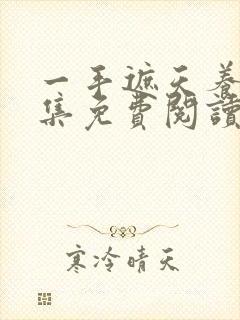 一手遮天养
集免費閱讀
寒冷晴天